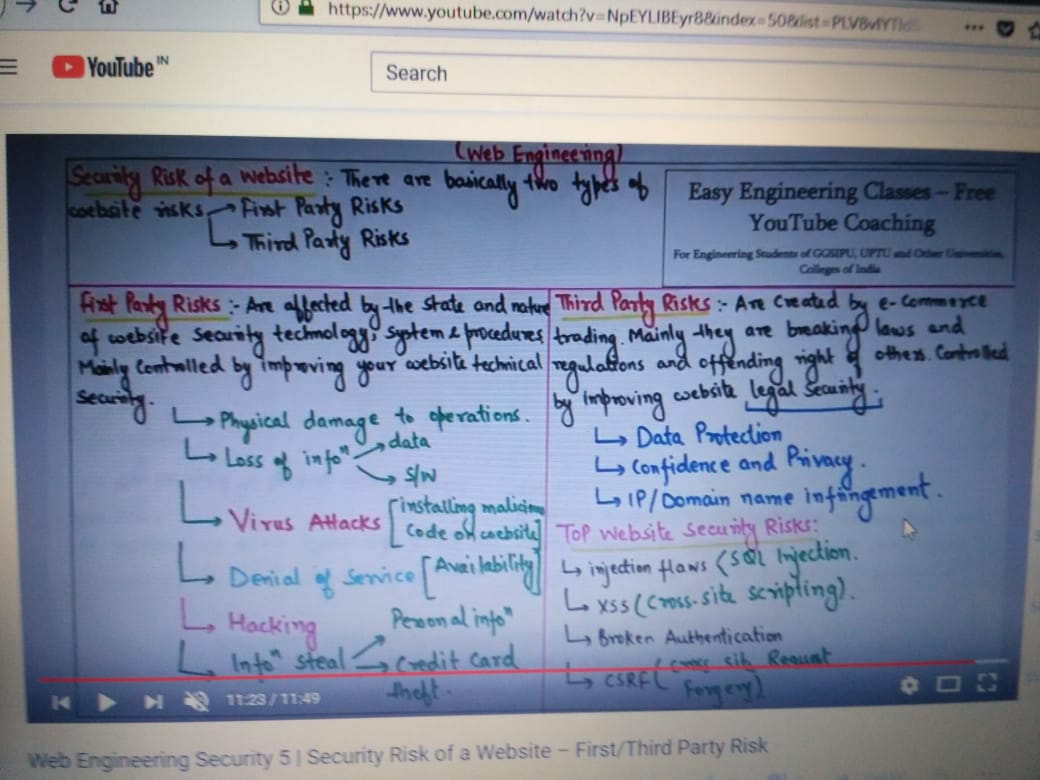 https://www.youtube.com/watch?v=NpEYLIBEyr8&index=50&list=PLV8vIYTIdS
YouTube IN
Search
(Web Engineering)
Security Risk of a website : There are basically two types of
website risks → First Party Risks
→ Third Party Risks
Easy Engineering Classes – Free
YouTube Coaching
For Engineering Students of GGSIPU, UPTU and Other Universities,
Colleges of India
First Party Risks :- Are affected by the state and nature
of website security technology, system & procedures
Mainly controlled by improving your website technical
security.
→ Physical damage to operations.
→ Loss of infoⁿ → data
→ S/W
→ Virus Attacks [installing malicious
code on website]
→ Denial of Service [Availability]
→ Hacking
→ Infoⁿ steal → Personal infoⁿ
→ Credit Card
theft.
Third Party Risks :- Are created by e-commerce
trading. Mainly they are breaking laws and
regulations and offending right of others. Controlled
by improving website legal security.
→ Data Protection
→ Confidence and Privacy.
→ IP/Domain name infringement.
Top Website Security Risks:
→ injection flaws (SQL Injection.
→ XSS (Cross-site scripting).
→ Broken Authentication
→ CSRF (Cross site Request
Forgery)
11:23 / 11:49
Web Engineering Security 5 | Security Risk of a Website – First/Third Party Risk